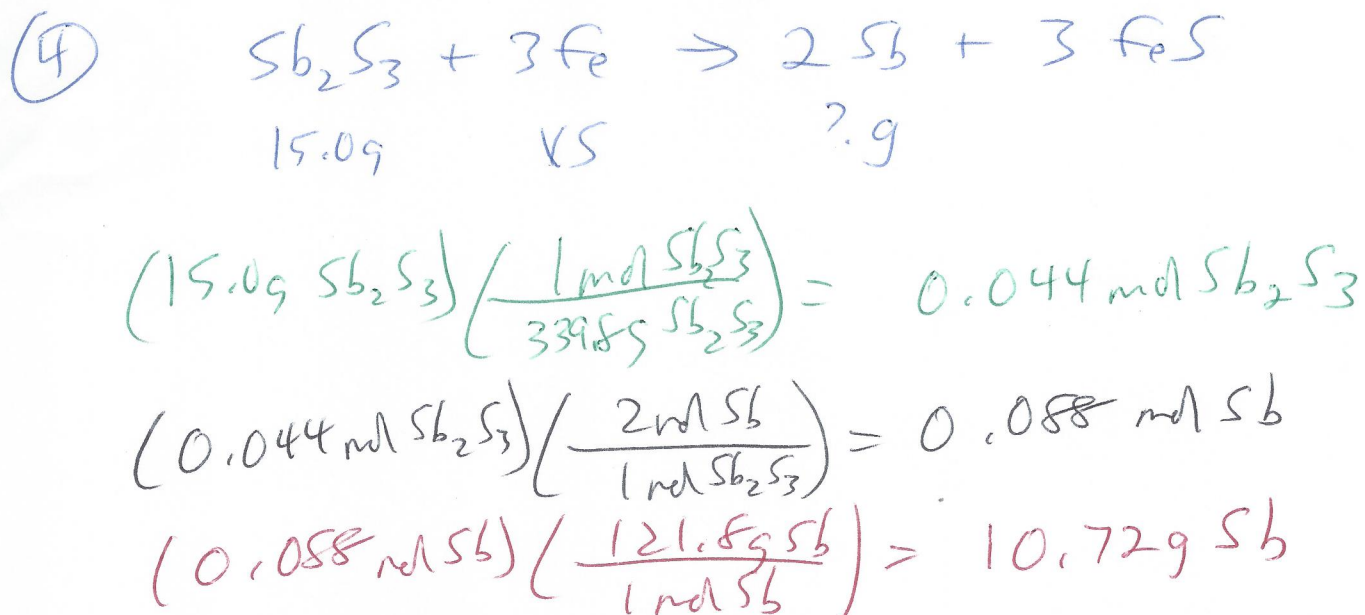 ④ Sb₂S₃ + 3Fe → 2Sb + 3FeS
15.0g XS ?.g
(15.0g Sb₂S₃)(1 mol Sb₂S₃ / 339.8g Sb₂S₃) = 0.044 mol Sb₂S₃
(0.044 mol Sb₂S₃)(2 mol Sb / 1 mol Sb₂S₃) = 0.088 mol Sb
(0.088 mol Sb)(121.8g Sb / 1 mol Sb) = 10.72g Sb